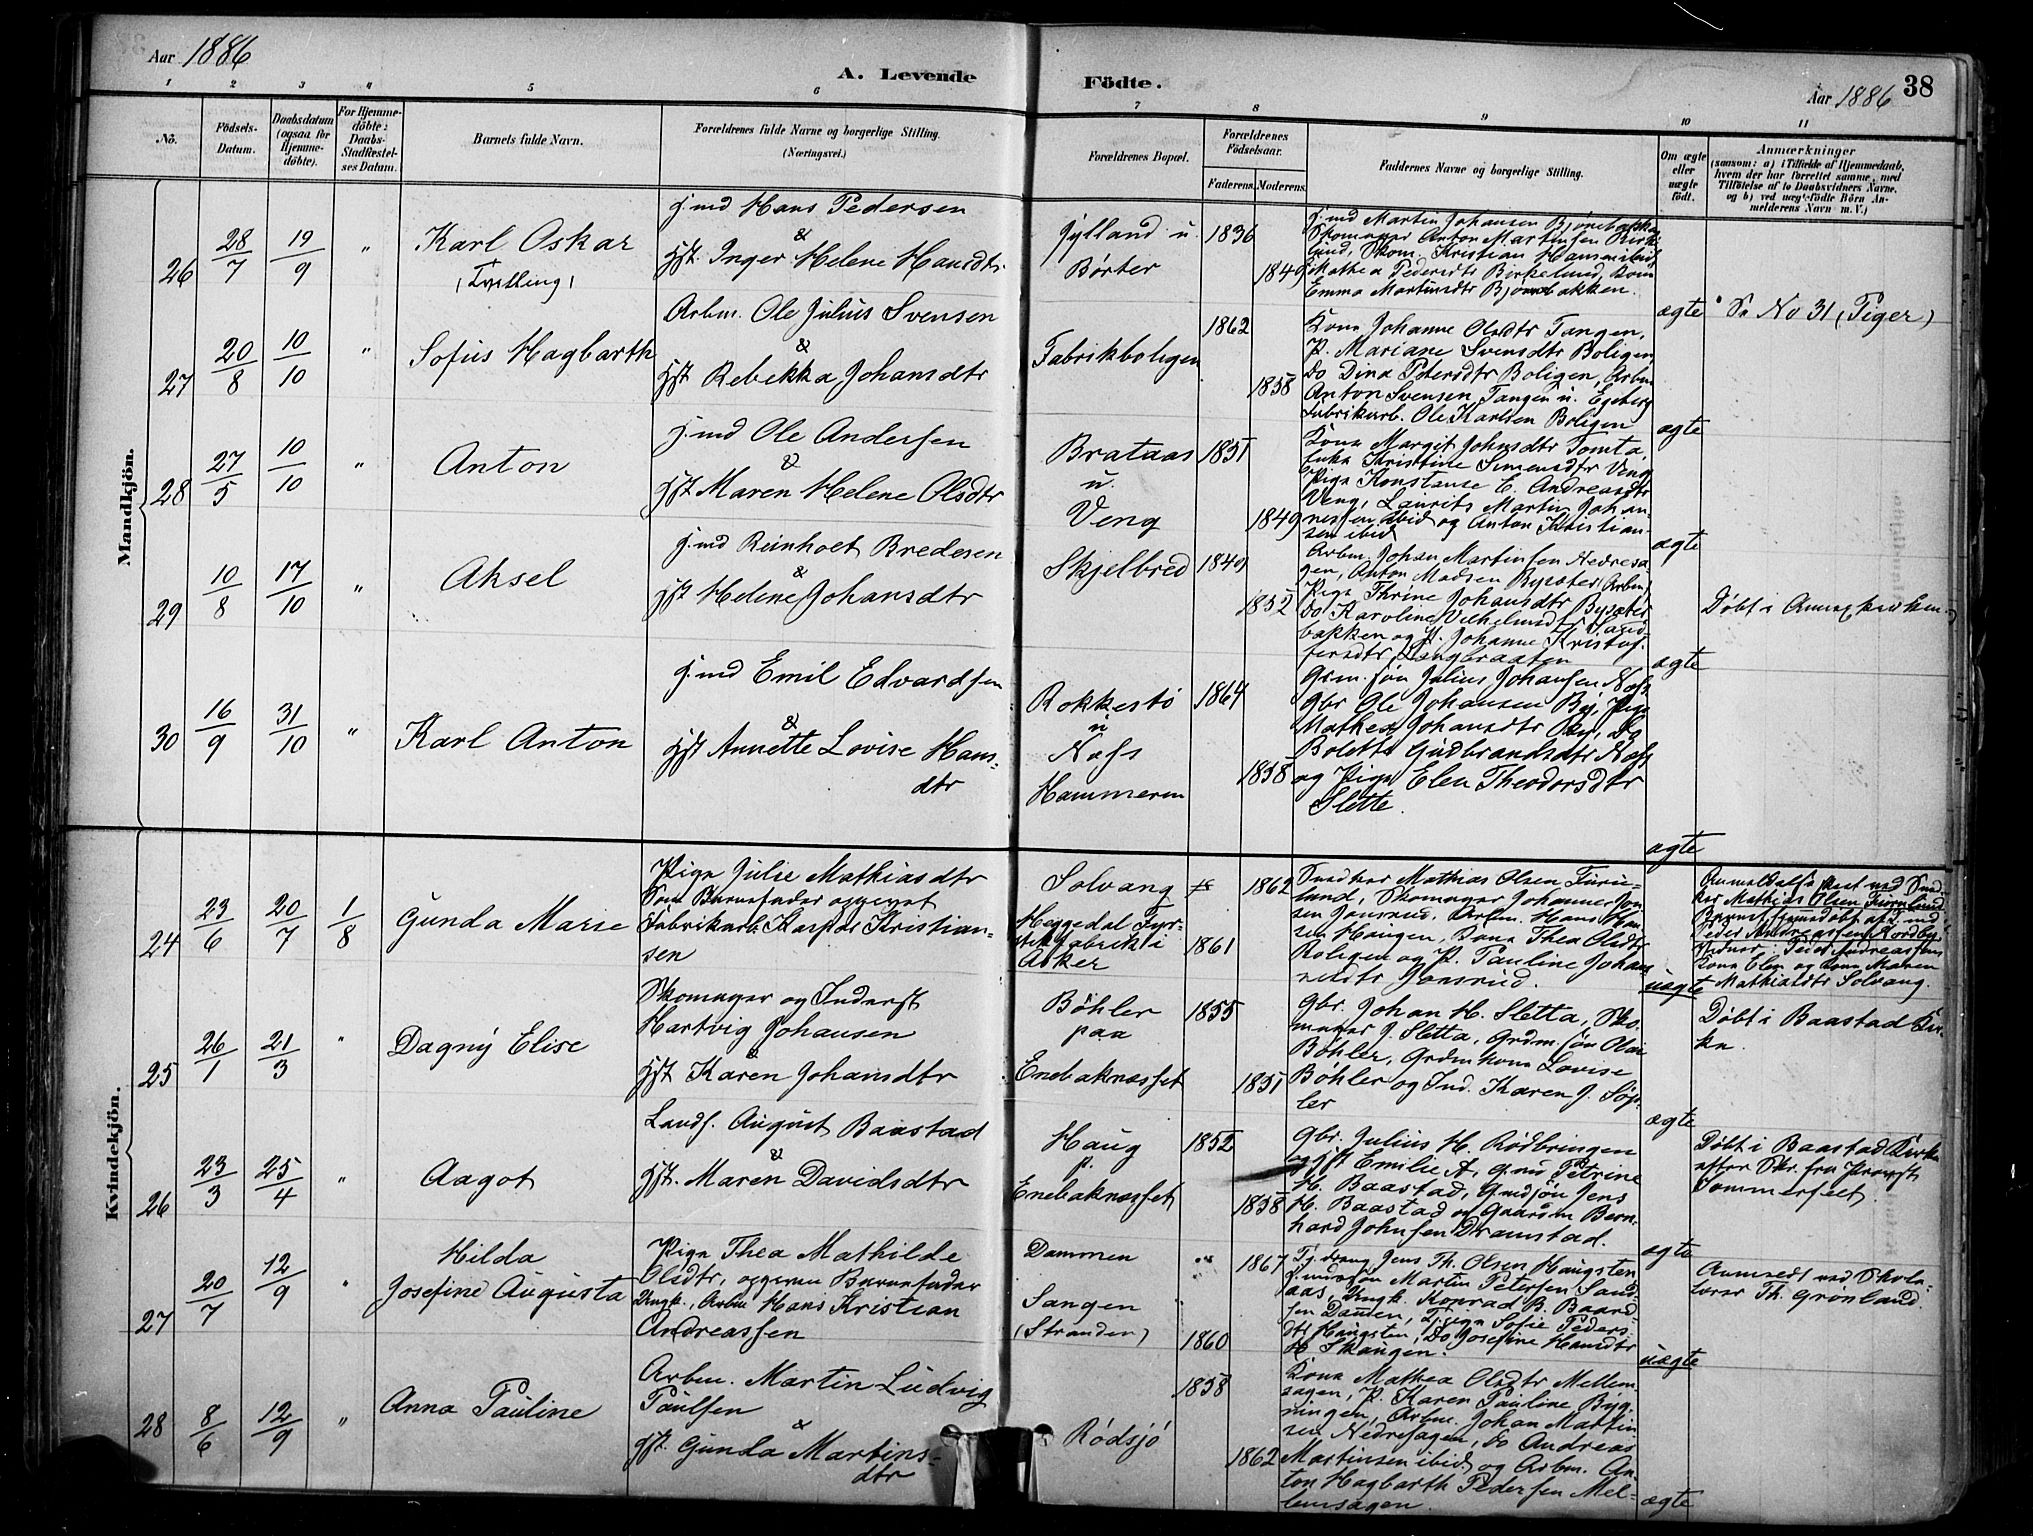 Aar 1886
A. Levende Födte.
Aar 1886 38
1 2 3 4 5 6 7 8 9 10 11
No.
Födsels-
Datum.
Daabsdatum
(ogsaa for
Hjemme-
döbte).
For Hjemme-
döbte:
Daabs-
Stadfæstel-
ses Datum.
Barnets fulde Navn.
Forældrenes fulde Navne og borgerlige Stilling.
(Næringsvei.)
Forældrenes Bopæl.
Forældrenes
Födselsaar.
Faderens. Moderens.
Faddernes Navne og borgerlige Stilling.
Om ægte
eller
uægte
födt.
Anmærkninger
(saasom: a) i Tilfælde af Hjemmedaab,
hvem der har forrettet samme, med
Tilföielse af to Daabsvidners Navne,
og b) ved uægte födte Börn An-
melderens Navn m. V.)
Mandkjön.
26 28/7 19/9 "
Karl Oskar
(Tvilling)
J.md Hans Pedersen
&
Hst. Inger Helene Hansdtr
Jylland u.
Börter
1836
1849
J.md Martin Johansen Bjønebakken
Skomager Anton Martinsen Birke-
lund, Skom. Kristian Hansen ibid
Mathea Pedersdtr Birkelund, Kone
Emma Martinsdtr Bjønebakken.
ægte
Se No 31 (Piger)
27 20/8 10/10 "
Sofus Hagbarth
Arbm. Ole Julius Svensen
&
Hst Rebekka Johansdtr
Fabrikboligen
1862
1858
Kone Johanne Olsdtr Tangen,
P. Mariane Svensdtr Boligen
Do Dina Petersdtr Boligen, Arbm
Anton Svensen Tangen u. Egeberg
Fabrikarb. Ole Karlsen Boligen
ægte
28 27/5 10/10 "
Anton
J.md Ole Andersen
&
Hst Maren Helene Olsdtr
Brataas
u.
Veng
1851
1849
Kone Margit Johnsdtr Tomta,
Enke Kristine Simensdtr Veng
Pige Konstanse E. Andreasdtr
Veng, Laurits Martin Johan-
nessen ibid og Anton Kristian-
sen ibid
ægte
29 10/8 17/10 "
Aksel
J.md Reinholt Bredesen
&
Hst Helene Johansdtr
Skjelbred
1849
1852
Arbm. Johan Martinsen Nedresa-
gen, Anton Madsen Bysæter (Arbm)
Pige Thrine Johansdtr Bysæter
Do Karoline Vilhelmsdtr Sand-
bakken og P. Johanne Kristof-
fersdtr Langbraaten
ægte
Døbt i Annexkirken
30 16/9 31/10 "
Karl Anton
J.md Emil Edvardsen
&
Hst Annette Lovise Hans-
dtr
Rokkestö
u
Næs
Hammeren
1864
1858
Grm. søn Julius Johansen Næs
Gbr Ole Johansen By, Pige
Mathea Johansdtr By, Do
Bolette Gudbrandsdtr Næs
og Pige Elen Theodorsdtr
Slette.
ægte
Kvindekjön.
24 23/6 20/7 1/8
Gunda Marie
Pige Julie Mathiasdtr
Som Barnefader opgivet
Fabrikarb. Kasper Kristian-
sen
Solvang
Heggedal Fyr-
stikfabrik i
Asker
1862
1861
Snedker Mathias Olsen Furu-
lund, Skomager Johannes Jon-
sen Jonsrud, Arbm. Hans Han-
sen Haugen, Kone Thea Olsdtr
Boligen og P. Pauline Johan-
nesdtr Jonsrud.
uægte
Anmeldelse skeet ved Sned-
ker Mathias Olsen Furulund
Barnet hjemdøbt af J.md
Peder Andreassen Nordby
Vidner: Peder Andreassens
Kone Elen og Kone Maren
Mathiasdtr Solvang.
25 26/1 21/3 "
Dagny Elise
Skomager og Inderst
Hartvig Johansen
&
Hst Karen Johansdtr
Böhler
paa
Enebaknæsset
1855
1851
Gbr. Johan H. Sletta, Sko-
mager J. Sletta, Grdm. søn Olai
Böhler, Grdm kone Lovise
Böhler og Ind. Karen J. Søp-
ler
ægte
Døbt i Baastad Kir-
ke.
26 23/3 25/4 "
Aagot
Landh. August Baastad
&
Hst. Maren Davidsdtr
Haug
p.
Enebaknæsset
1852
1858
Gbr. Julius H. Rödbringen
og Hst Emilie A, Petrine
H. Baastad, Gmdsøn Jens
H. Baastad og Gaardm. Bern-
hard Johnsen Dramstad.
ægte
Døbt i Baastad Kirke
efter Skr. fra Provst
Sommerfeldt.
27 20/7 12/9 "
Hilda
Josefine Augusta
Pige Thea Mathilde
Olsdtr, opgiven Barnefader
Ungk., Arbm Hans Kristian
Andreassen
Dammen
Sangen
(Stranden)
"
1867
1860
Tj.dreng Jens Th. Olsen Haugsten
J.mdssøn Martin Petersen Sand-
aas, Ungk. Konrad B. Baard-
sen Dammen, Pige Sofie Peders-
dtr Haugsten, Do Josefine Hansdtr
Skaugen.
uægte
Anmeldt ved Skole-
lærer Th. Grønlund.
28 8/6 12/9 "
Anna Pauline
Arbm. Martin Ludvig
Paulsen
&
Hst. Gunda Martins-
dtr
Rödsjö
1858
1862
Kone Mathea Olsdtr Mellem-
sagen, P. Karen Pauline Byg-
ningen, Arbm. Johan Martin-
sen Nedresagen, do Andreas
Martinsen ibid og Arbm. An-
ton Hagbarth Pedersen Mel-
lemsagen.
ægte